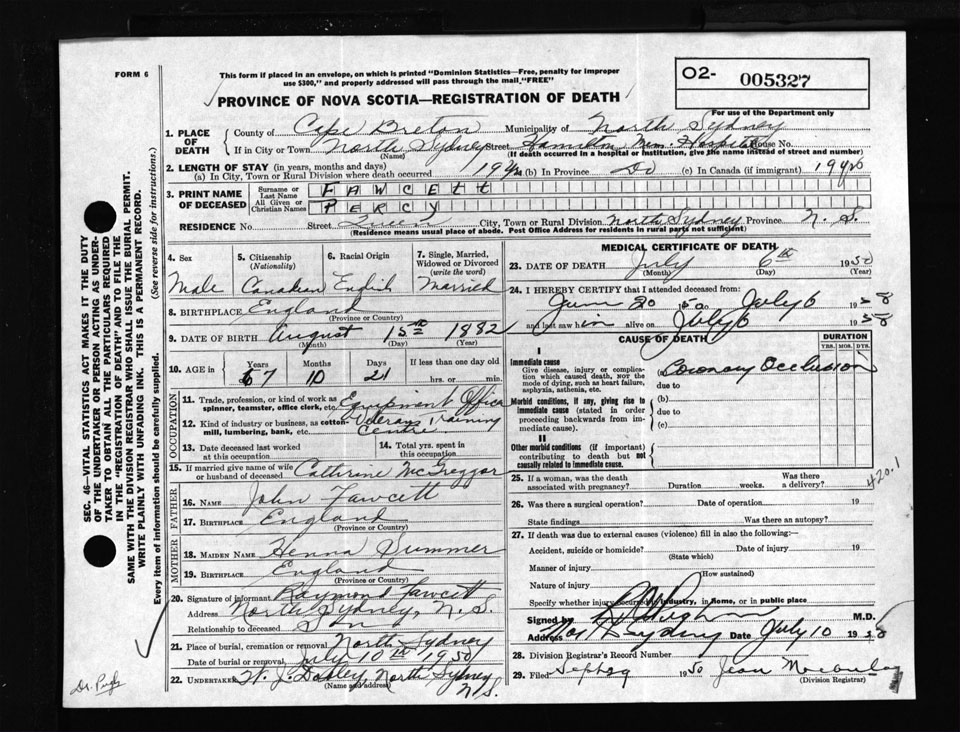 FORM 6
This form if placed in an envelope, on which is printed "Dominion Statistics—Free, penalty for improper
use $300," and properly addressed will pass through the mail "FREE"
O2- 005327
PROVINCE OF NOVA SCOTIA—REGISTRATION OF DEATH
For use of the Department only
1. PLACE OF DEATH
County of Cape Breton Municipality of North Sydney
If in City or Town North Sydney Street Hamilton Mem. Hospital House No.
(Name) (If death occurred in a hospital or institution, give the name instead of street and number)
2. LENGTH OF STAY (in years, months and days)
(a) In City, Town or Rural Division where death occurred (b) In Province Do (c) In Canada (if immigrant)
3. PRINT NAME OF DECEASED
Surname or Last Name FAWCETT
All Given or Christian Names PERCY
RESIDENCE No. Street Queen City, Town or Rural Division North Sydney Province N. S.
(Residence means usual place of abode. Post Office Address for residents in rural parts not sufficient)
4. Sex Male
5. Citizenship (Nationality) Canadian
6. Racial Origin English
7. Single, Married, Widowed or Divorced (write the word) Married
8. BIRTHPLACE England
(Province or Country)
9. DATE OF BIRTH August 15th 1882
(Month) (Day) (Year)
10. AGE in Years 67 Months 10 Days 21 If less than one day old
hrs. or min.
OCCUPATION
11. Trade, profession, or kind of work as spinner, teamster, office clerk, etc. Equipment Officer
12. Kind of industry or business, as cotton-mill, lumbering, bank, etc. Veterans Training Centre
13. Date deceased last worked at this occupation
14. Total yrs. spent in this occupation
15. If married give name of wife or husband of deceased Catherine McGreggor
FATHER
16. NAME John Fawcett
17. BIRTHPLACE England
(Province or Country)
MOTHER
18. MAIDEN NAME Henna Summer
19. BIRTHPLACE England
(Province or Country)
20. Signature of informant Raymond Fawcett
Address North Sydney, N. S.
Relationship to deceased Son
21. Place of burial, cremation or removal North Sydney
Date of burial or removal July 10th 1950
22. UNDERTAKER W. J. Dooley, North Sydney N.S.
(Name and address)
MEDICAL CERTIFICATE OF DEATH
23. DATE OF DEATH July 6th 1950
(Month) (Day) (Year)
24. I HEREBY CERTIFY that I attended deceased from:
June 20 50 to July 6 1950
and last saw him alive on July 6 1950
CAUSE OF DEATH
DURATION
YRS. MOS. DYS.
I
Immediate cause
Give disease, injury or complication which caused death, nor the mode of dying, such as heart failure, asphyxia, asthenia, etc.
(a) Coronary Occlusion
due to
Morbid conditions, if any, giving rise to immediate cause (stated in order proceeding backwards from immediate cause).
(b)
due to
(c)
II
Other morbid conditions (if important) contributing to death but not causally related to immediate cause.
420.1
25. If a woman, was the death associated with pregnancy? Duration weeks. Was there a delivery?
26. Was there a surgical operation? Date of operation 19
State findings Was there an autopsy?
27. If death was due to external causes (violence) fill in also the following:—
Accident, suicide or homicide? Date of injury 19
(State which)
Manner of injury
(How sustained)
Nature of injury
Specify whether injury occurred in industry, in home, or in public place
Signed by M.D.
Address Sydney Date July 10 1950
28. Division Registrar's Record Number
29. Filed 1950 Jean
(Division Registrar)
SEC. 46—VITAL STATISTICS ACT MAKES IT THE DUTY
OF THE UNDERTAKER OR PERSON ACTING AS UNDER-
TAKER TO OBTAIN ALL THE PARTICULARS REQUIRED
IN THE "REGISTRATION OF DEATH" AND TO FILE THE
SAME WITH THE DIVISION REGISTRAR WHO SHALL ISSUE THE BURIAL PERMIT.
WRITE PLAINLY WITH UNFADING INK. THIS IS A PERMANENT RECORD.
Every item of information should be carefully supplied. (See reverse side for instructions.)
Dr.